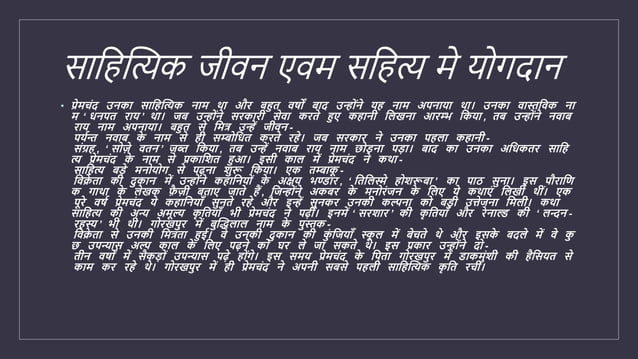 साहित्यिक जीवन एवम सहित्य मे योगदान
• प्रेमचंद उनका साहित्यिक नाम था और बहुत वर्षों बाद उन्होंने यह नाम अपनाया था। उनका वास्तविक ना
म ‘ धनपत राय ’ था। जब उन्होंने सरकारी सेवा करते हुए कहानी लिखना आरम्भ किया , तब उन्होंने नवाब
राय नाम अपनाया। बहुत से मित्र उन्हें जीवन -
पर्यन्त नवाब के नाम से ही सम्बोधित करते रहे। जब सरकार ने उनका पहला कहानी -
संग्रह , ‘ सोज़े वतन ’ ज़ब्त किया , तब उन्हें नवाब राय नाम छोड़ना पड़ा। बाद का उनका अधिकतर साहि
त्य प्रेमचंद के नाम से प्रकाशित हुआ। इसी काल में प्रेमचंद ने कथा -
साहित्य बड़े मनोयोग से पढ़ना शुरू किया। एक तम्बाकू -
विक्रेता की दुकान में उन्होंने कहानियों के अक्षय भण्डार , ‘ तिलिस्मे होशरूबा ’ का पाठ सुना। इस पौराणि
क गाथा के लेखक फ़ैज़ी बताए जाते हैं , जिन्होंने अकबर के मनोरंजन के लिए ये कथाएं लिखी थीं। एक
पूरे वर्ष प्रेमचंद ये कहानियाँ सुनते रहे और इन्हें सुनकर उनकी कल्पना को बड़ी उत्तेजना मिली। कथा
साहित्य की अन्य अमूल्य कृतियाँ भी प्रेमचंद ने पढ़ीं। इनमें ‘ सरशार ’ की कृतियाँ और रेनाल्ड की ‘ लन्दन -
रहस्य ’ भी थी। गोरखपुर में बुद्धिलाल नाम के पुस्तक -
विक्रेता से उनकी मित्रता हुई। वे उनकी दुकान की कुंजियाँ स्कूल में बेचते थे और इसके बदले में वे कु
छ उपन्यास अल्प काल के लिए पढ़ने को घर ले जा सकते थे। इस प्रकार उन्होंने दो -
तीन वर्षों में सैकड़ों उपन्यास पढ़े होंगे। इस समय प्रेमचंद के पिता गोरखपुर में डाकमुंशी की हैसियत से
काम कर रहे थे। गोरखपुर में ही प्रेमचंद ने अपनी सबसे पहली साहित्यिक कृति रची।